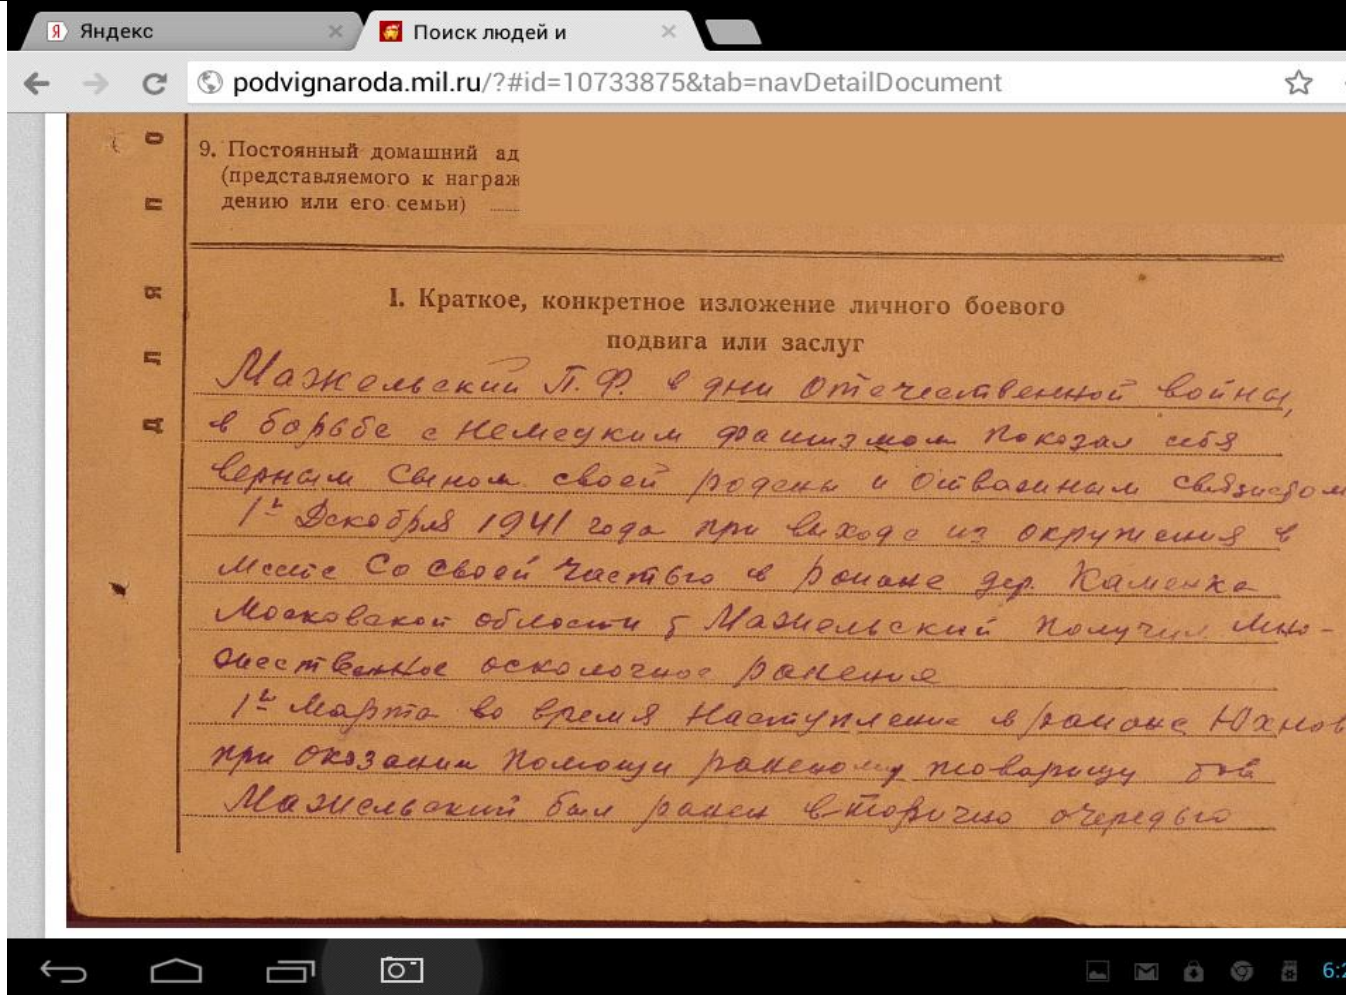 Яндекс
Поиск людей и
podvignaroda.mil.ru/?#id=10733875&tab=navDetailDocument
ДЛЯ ПО
9. Постоянный домашний ад
(представляемого к награж
дению или его семьи)
I. Краткое, конкретное изложение личного боевого
подвига или заслуг
Мажельский П.Ф. в дни Отечественной войны,
в борьбе с немецким фашизмом показал себя
верным сыном своей родены и отважным связистом
1го Декабря 1941 года при выходе из окружения в
месте со своей частью в районе дер. Каменка
Московской области т Мажельский получил мно-
жественное осколочное ранения
1го Марта во время наступление в районе Юхнов
при оказании помощи раненому товарищу тов
Мажельский был ранен вторично очередью
6:2